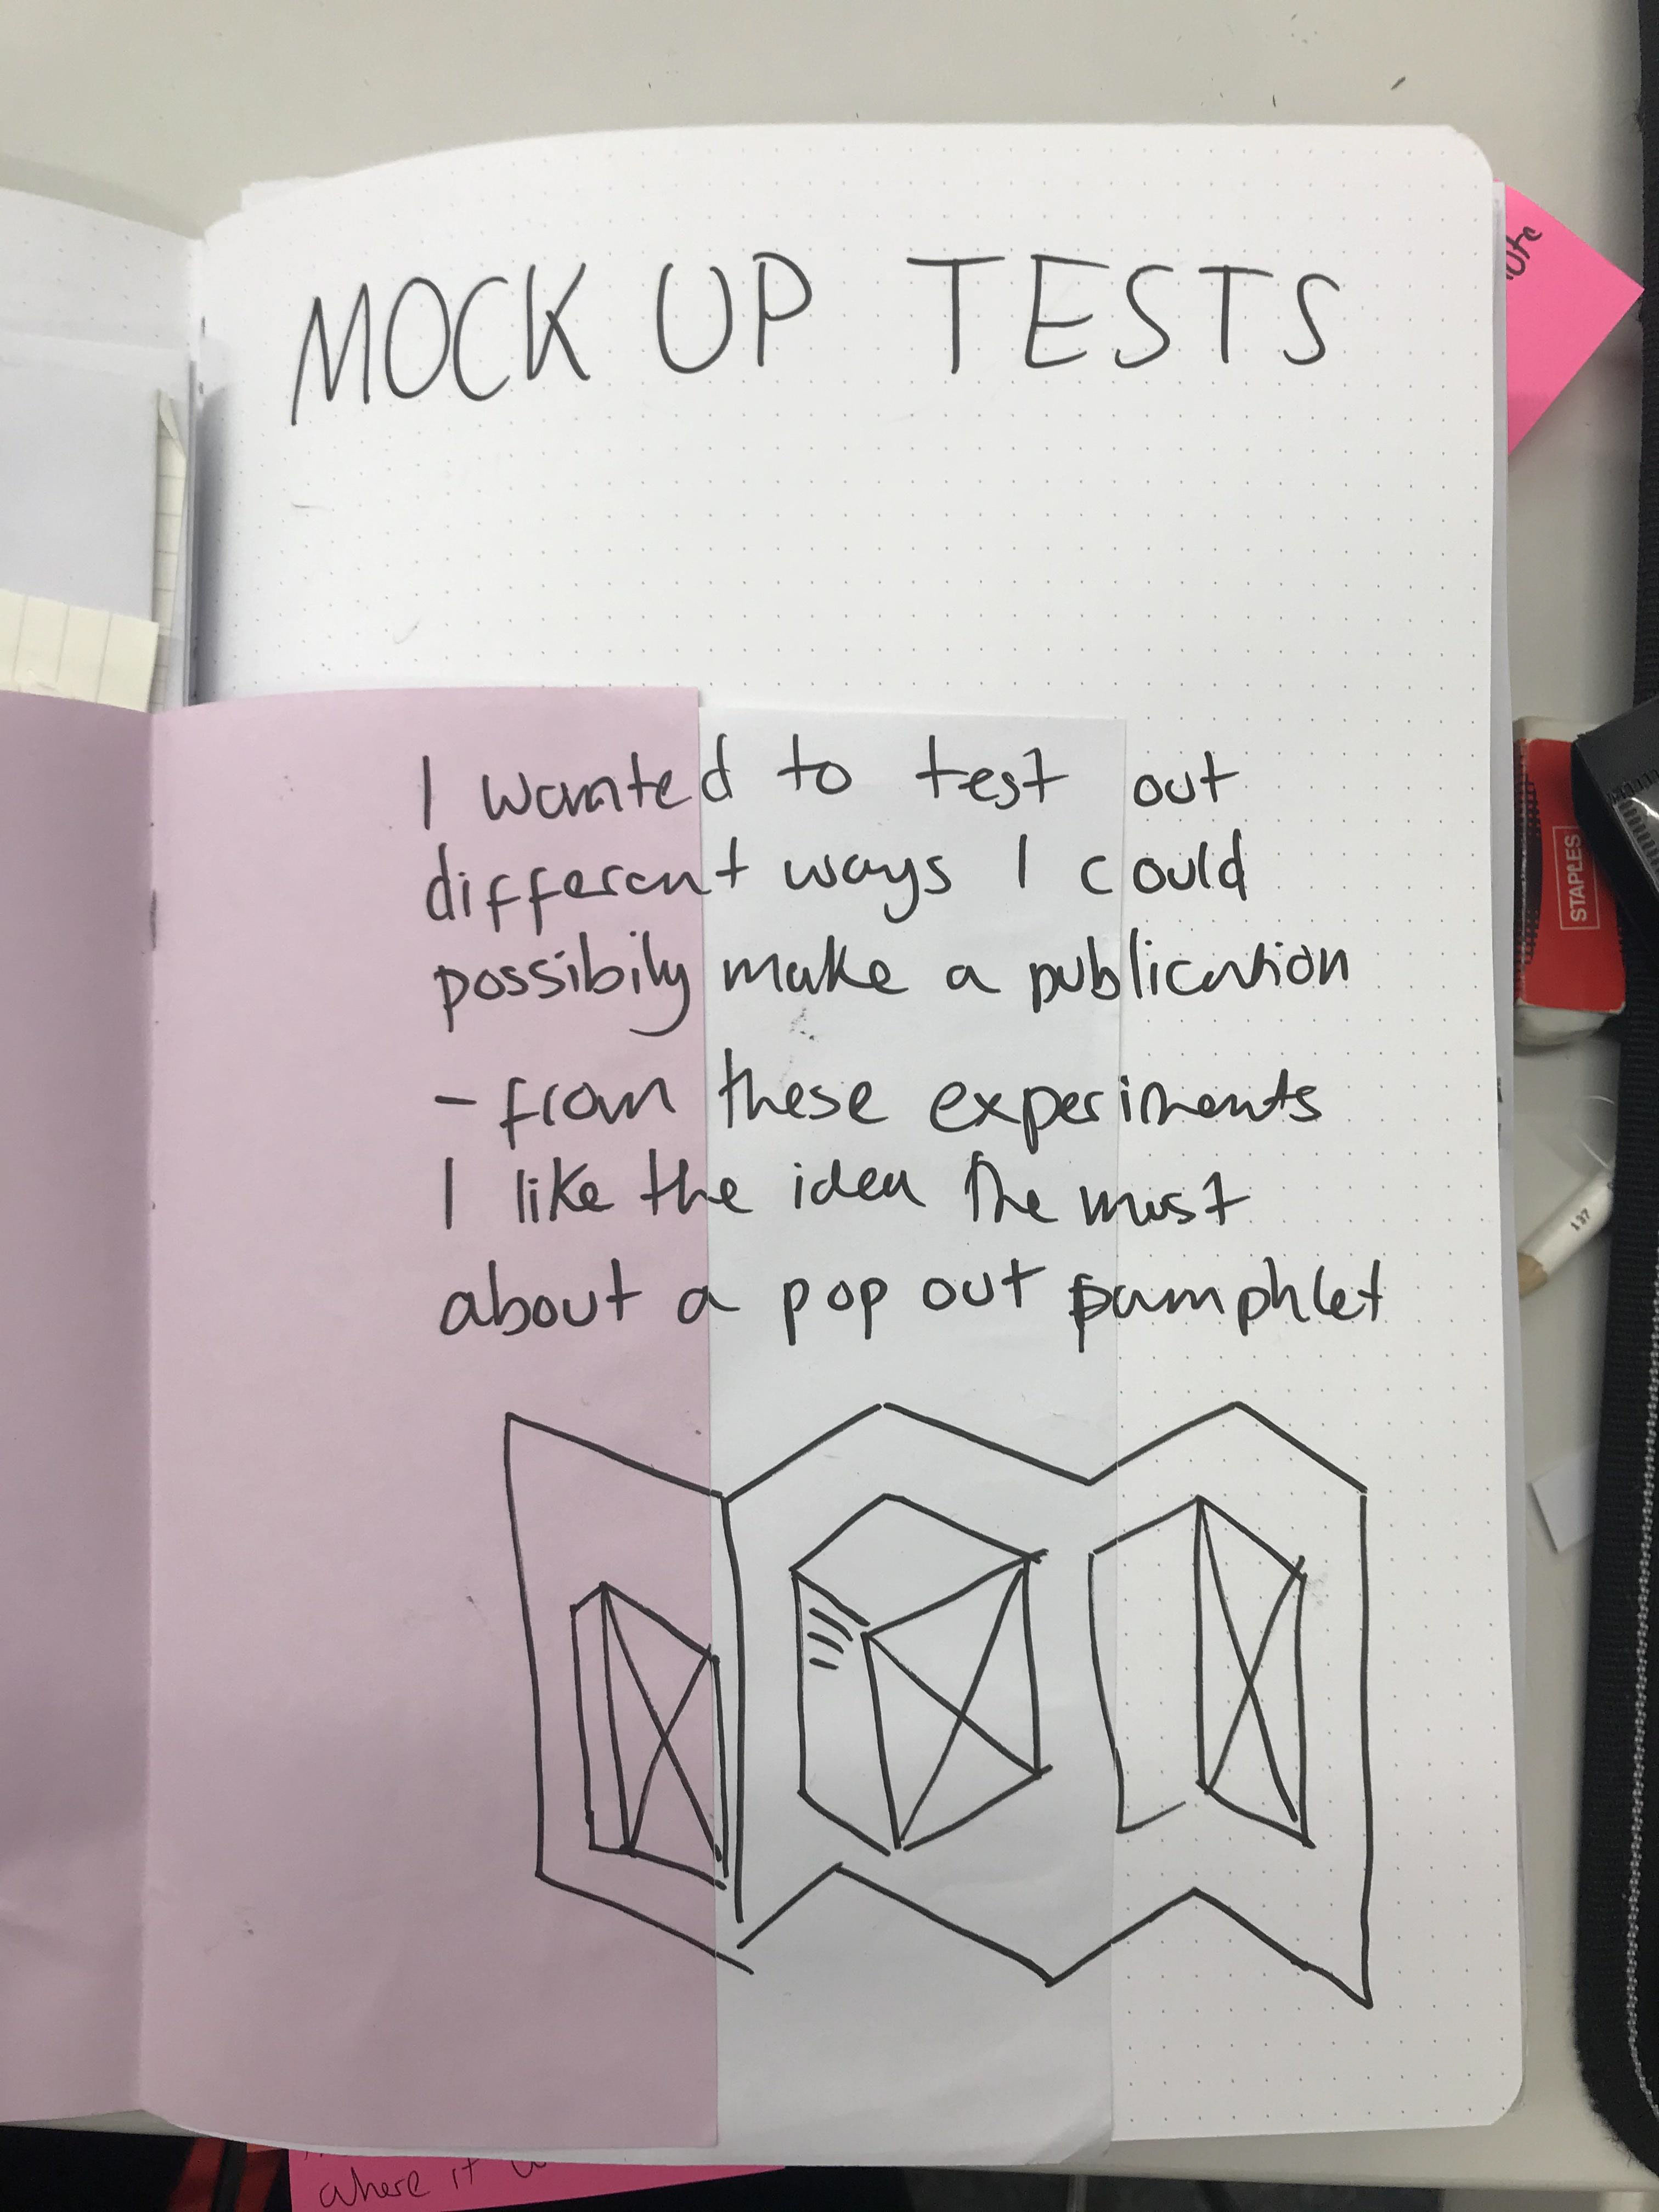 MOCK UP TESTS
I wanted to test out
different ways I could
possibily make a publication
- from these experiments
I like the idea the most
about a pop out pamphlet
STAPLES
137
where it